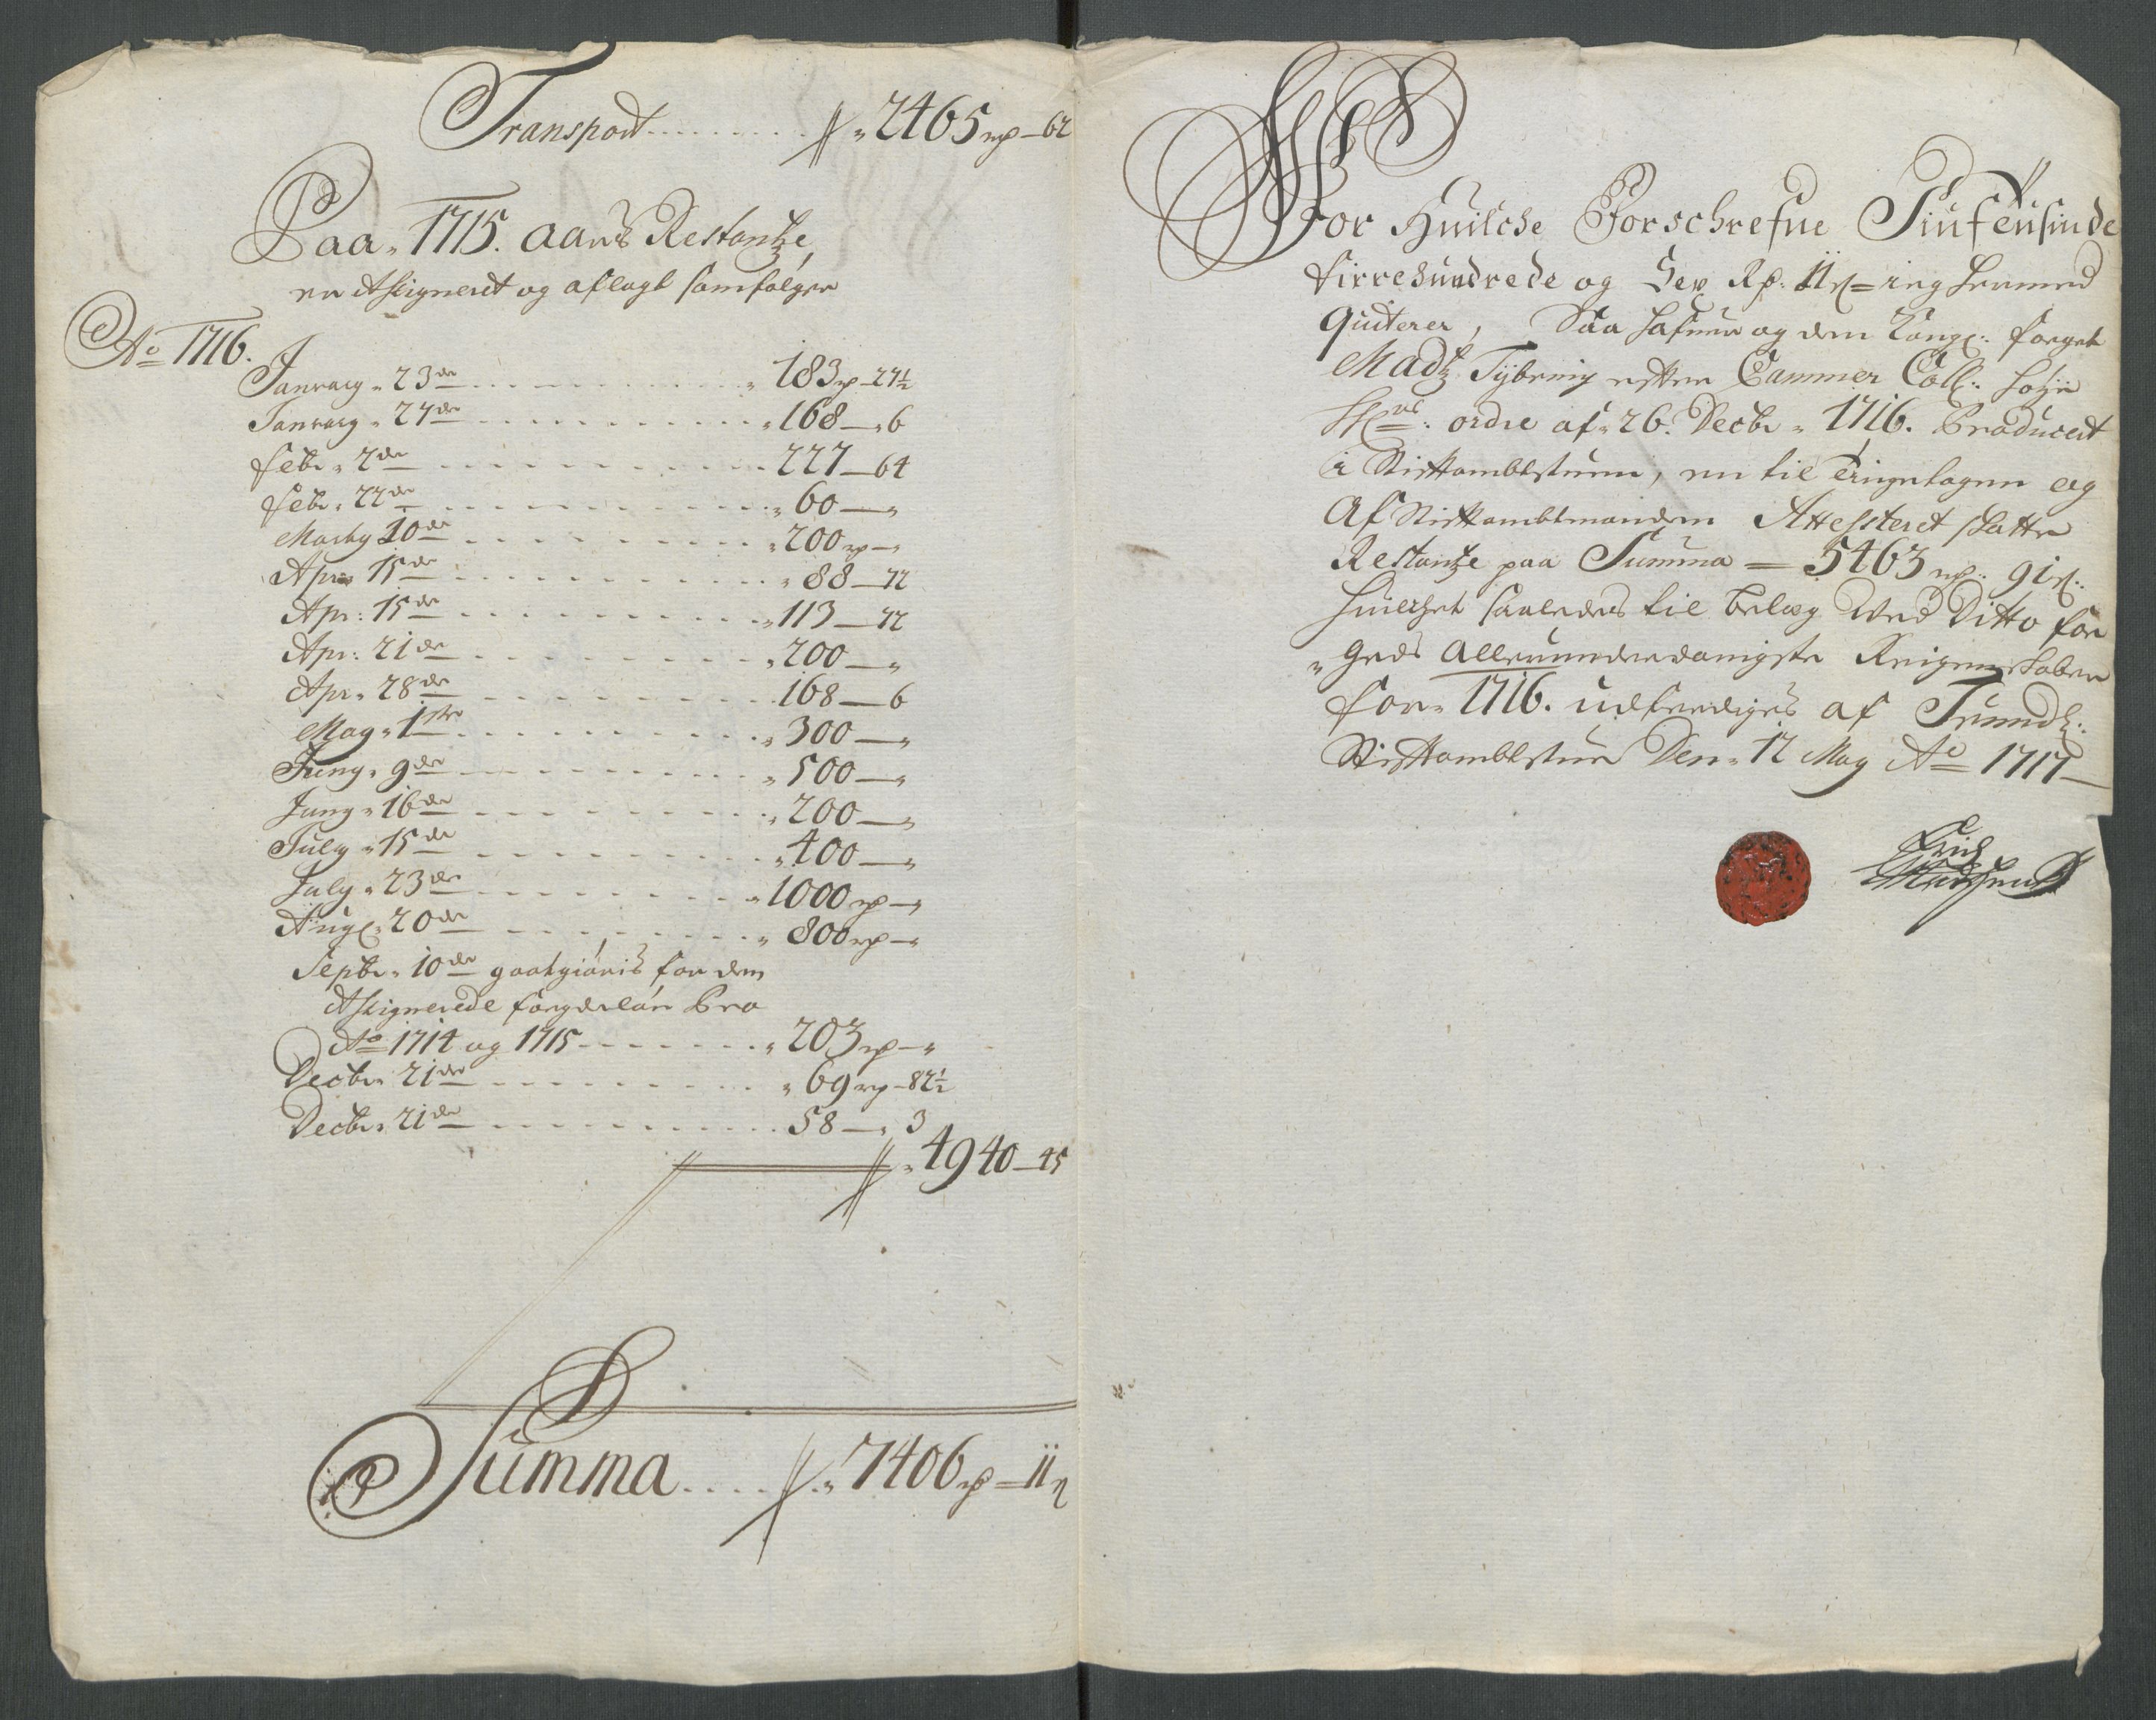 Transport . . . . . . . . 2465 rp — 62
Paa 1715. aars Restantze,
er Assigneret og aflagt som følger
Ao 1716.
January 23de . . . . . . . 183 rp — 27½
January 27de . . . . . . . 168 — 6
Febr. 2de . . . . . . . 227 — 64
Febr. 22de . . . . . . . 60 —
Marty 10de . . . . . . . 200 rp —
Apr. 15de . . . . . . . 88 — 72
Apr: 15de . . . . . . . 113 — 72
Apr: 21de . . . . . . . 200 —
Apr. 28de . . . . . . . 168 — 6
May 1ste . . . . . . . 300 —
Juny 9de . . . . . . . 500 —
Juny 16de . . . . . . . 200 —
July 15de . . . . . . . 400 —
July 23de . . . . . . . 1000 rp —
Aug. 20de . . . . . . . 800 rp —
Septbr. 10de godtgiøris for dem
Assignerede Pro
Ao 1714 og 1715 . . . . . . . 203 rp —
Decbr. 21de . . . . . . . 69 rp — 82½
Decbr. 21de . . . . . . . 58 — 3
4940 — 45
Summa . . . . 7406 rp — 11
For Huilche Forschrefne Siufensinde
firrehundrede og Sex Rp. 11 = ieg hermed
Quiterer, Saa hafuer og den Kongl: foget
Madtz Tÿbring efter Cammer Coll: høÿe
ordre af 26. Decbr 1716. Producert
i Stiftambtstuen, en til eringtagen og
Af Stiftambtmanden Attesteret schatte
Restantze paa Summa = 5463 rp: 91
huilchet saaledes til belæg Ved Ditto fo¬
geds Allerunderdanigste Reigenschaber
for 1716. udferdiges af Trundh:
Stiftambtstue Den 12 May Ao 1717
Erich